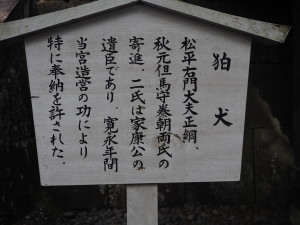 狛犬
松平右門大夫正綱、
秋元但馬守泰朝両氏の
寄進、二氏は家康公の
遺臣であり、寛永年間
当宮造営の功により
特に奉納を許された。